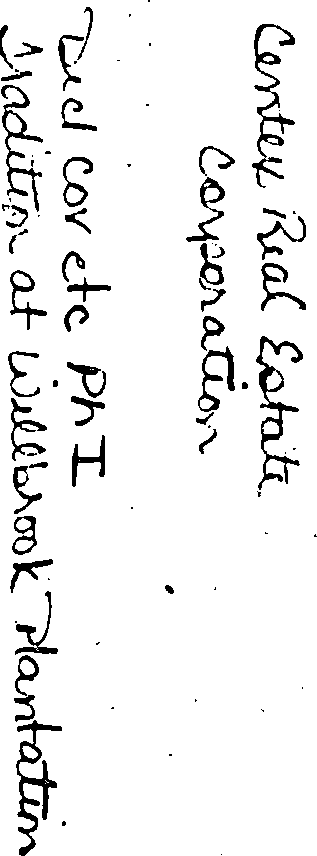 Centex Real Estate
Corporation
Decl Cov etc Ph I
Tradition at Willbrook Plantation